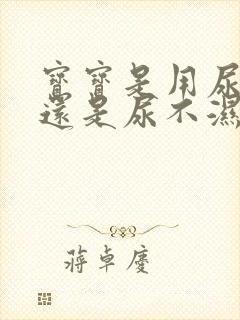 寶寶是用尿
還是尿不濕
蔣卓慶